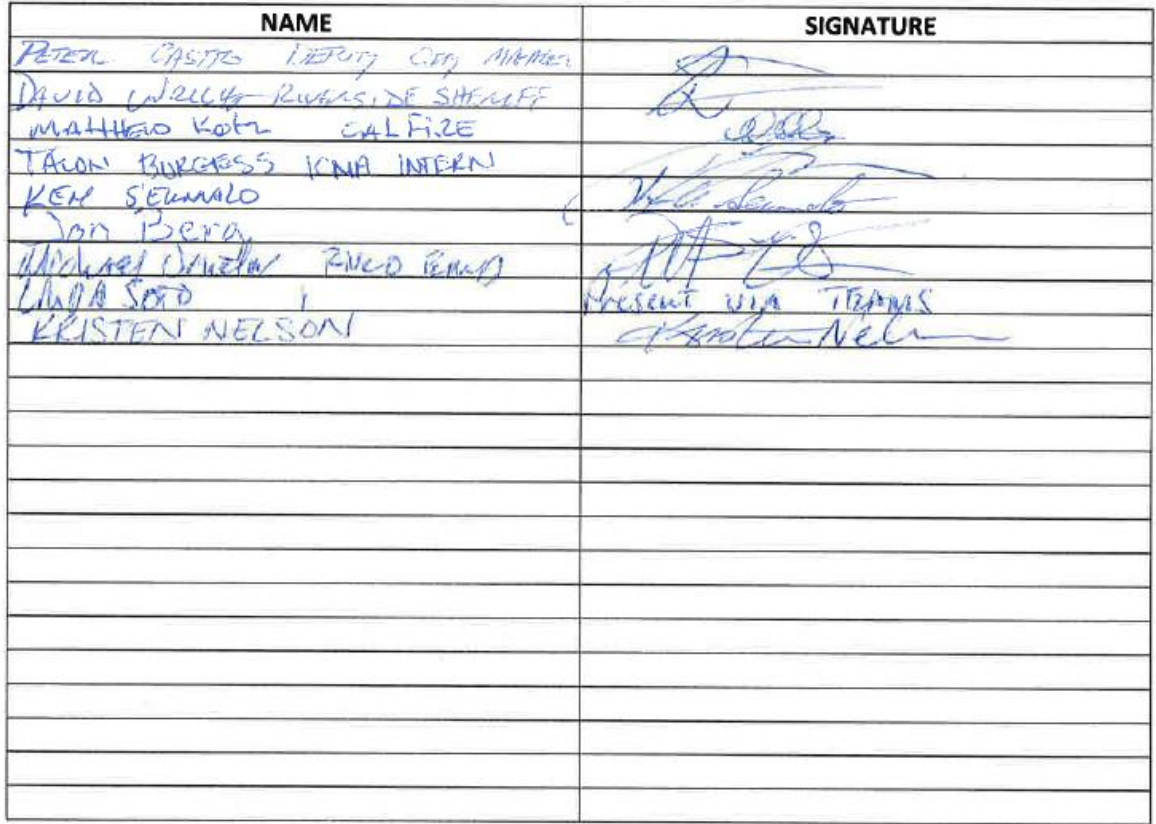 NAME SIGNATURE
PETER CASTRO DEPUTY CITY MANAGER
DAVID WRIGHT RIVERSIDE SHERIFF
MATTHEW KOTZ CAL FIRE
TALON BURGESS ICMA INTERN
KEN
Jon Berg
Michael
LINDA SOTO Present VIA TEAMS
KRISTEN NELSON Kristen Nelson